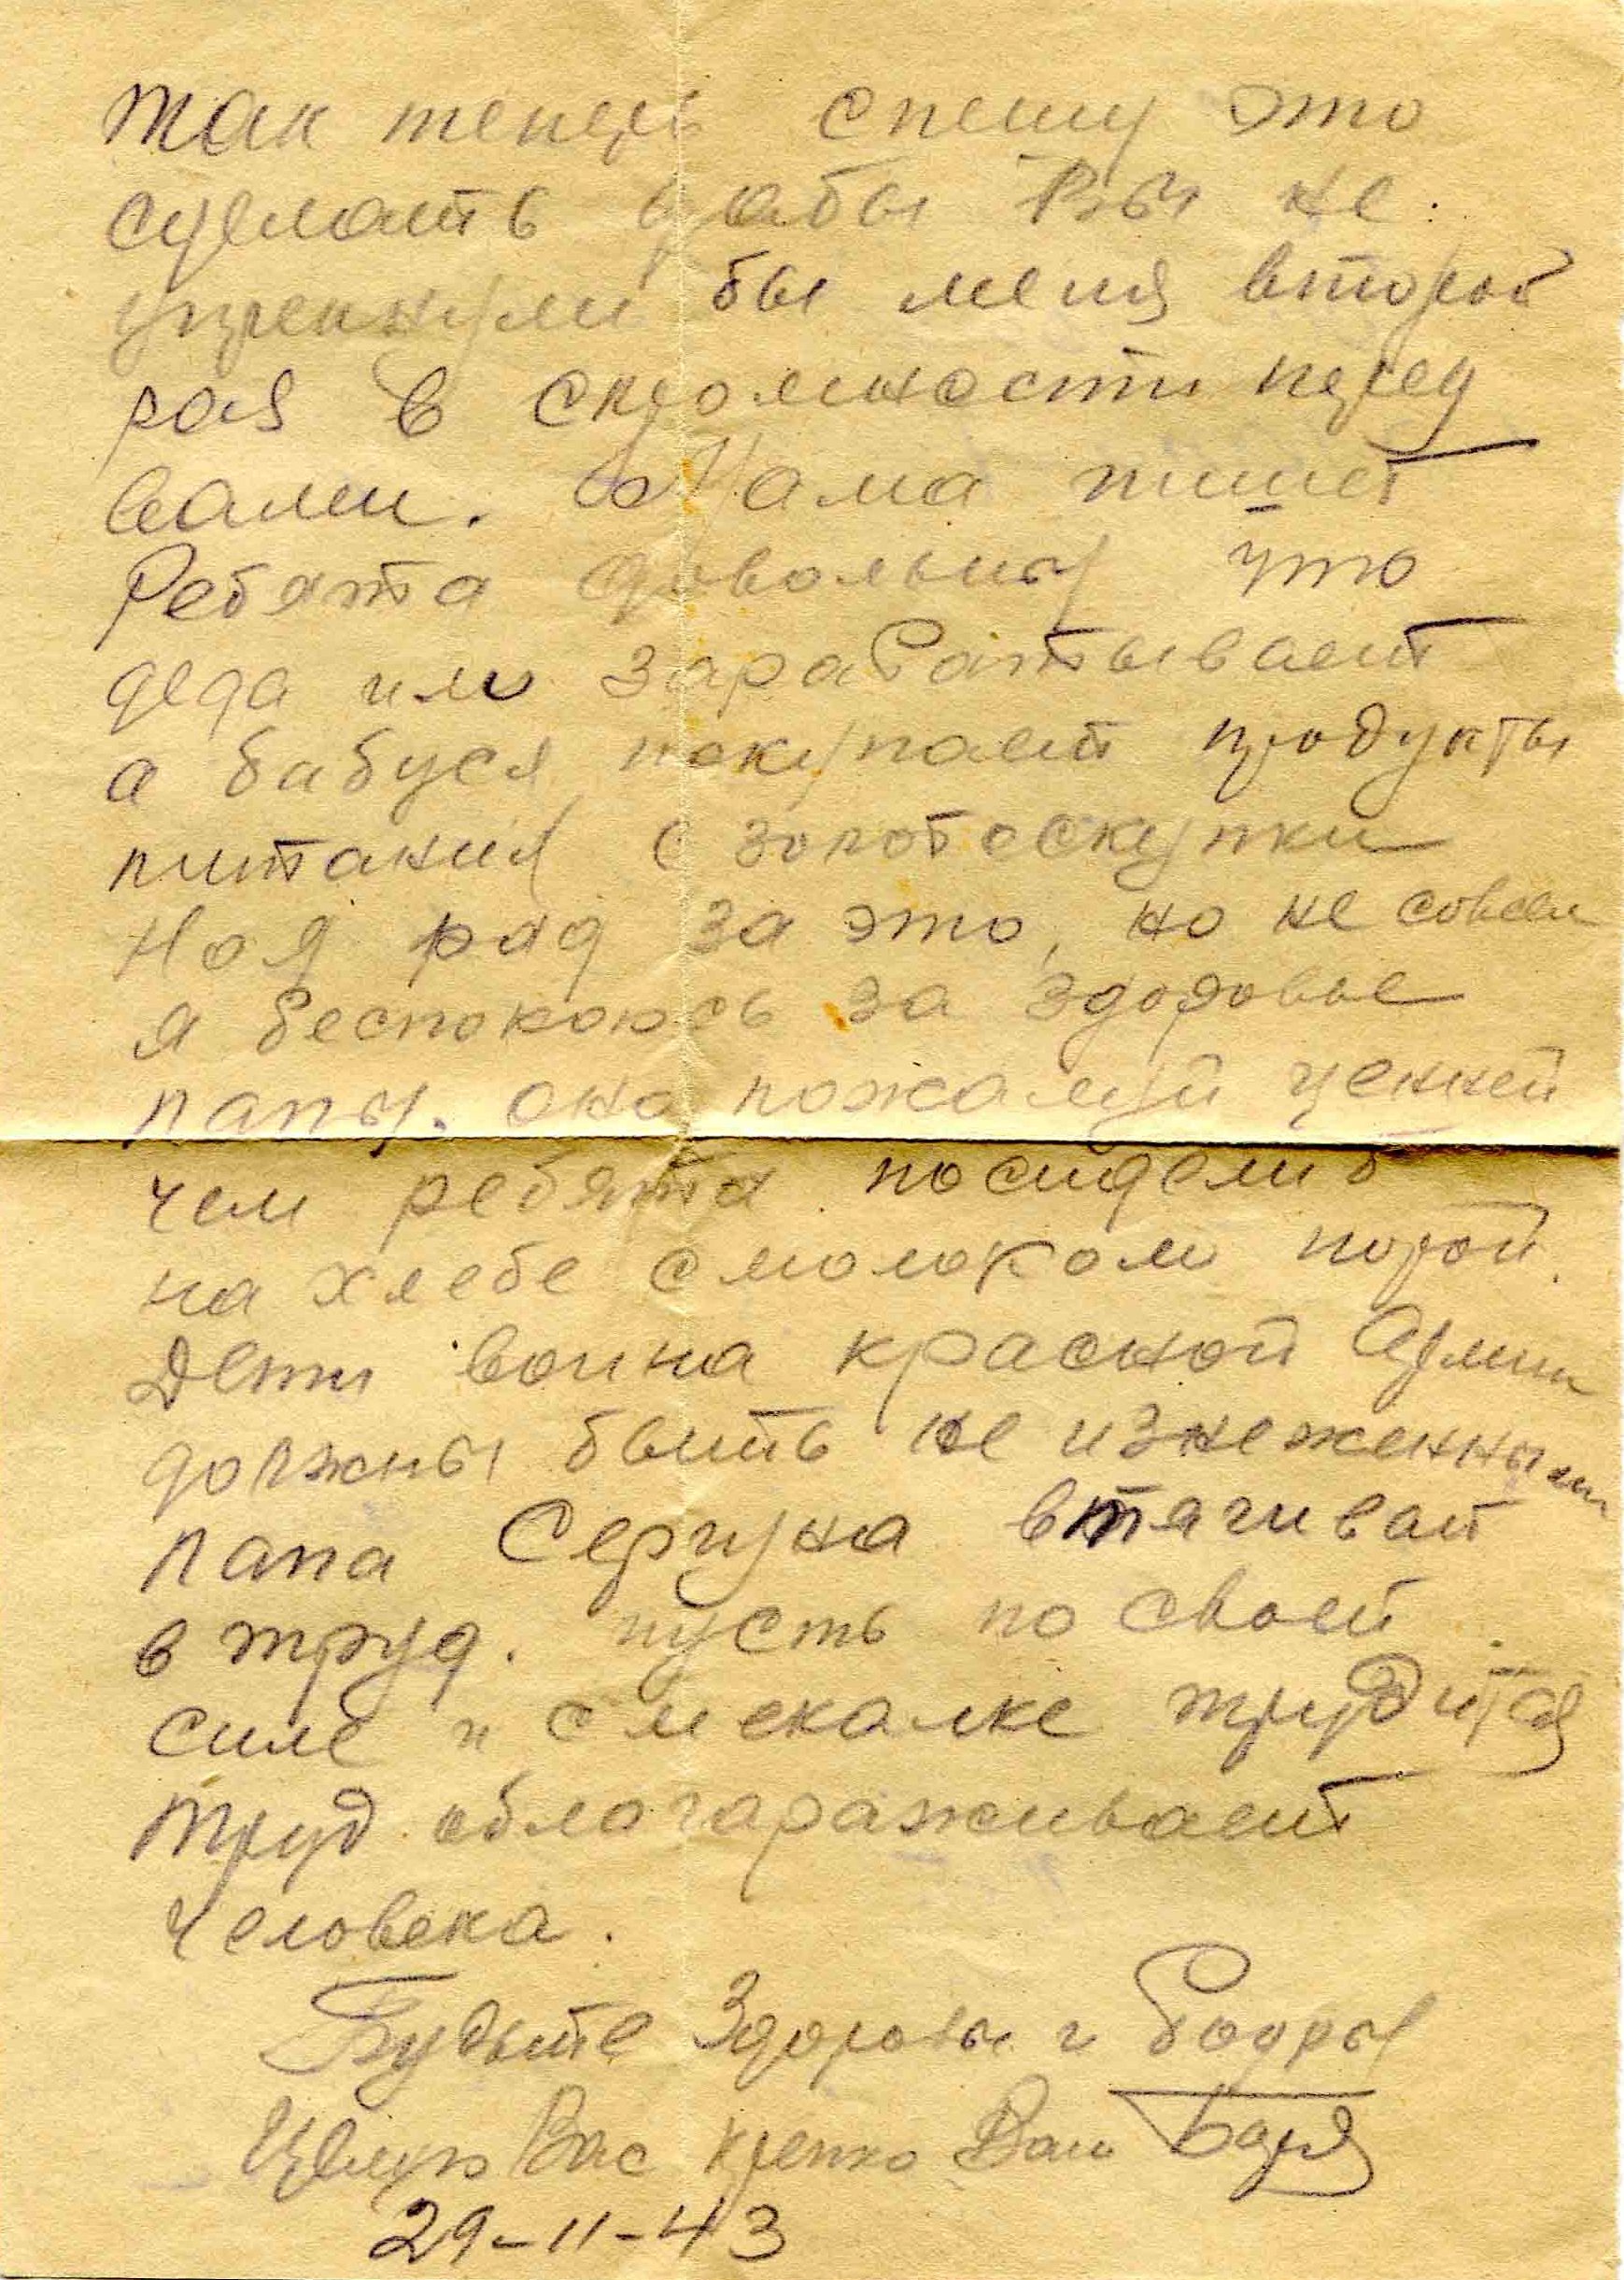 так теперь спешу это
сделать дабы Вы не
упрекнули бы меня второй
раз в скромности перед
вами. Мама пишет
Ребята довольны что
деда им зарабатывает
а бабуся покупает продукты
питания с золотоскупки
Но я рад за это, но не совсем
я беспокоюсь за здоровье
папы. оно пожалуй ценней
чем ребята посидели б
на хлебе с молоком порой.
Дети воина красной Армии
должны быть не изнеженными
папа Сергуна втягивай
в труд. пусть по своей
силе и смекалке трудится
труд облагараживает
человека.
Будьте Здоровы и бодры
Целую Вас крепко Ваш Боря
29-11-43